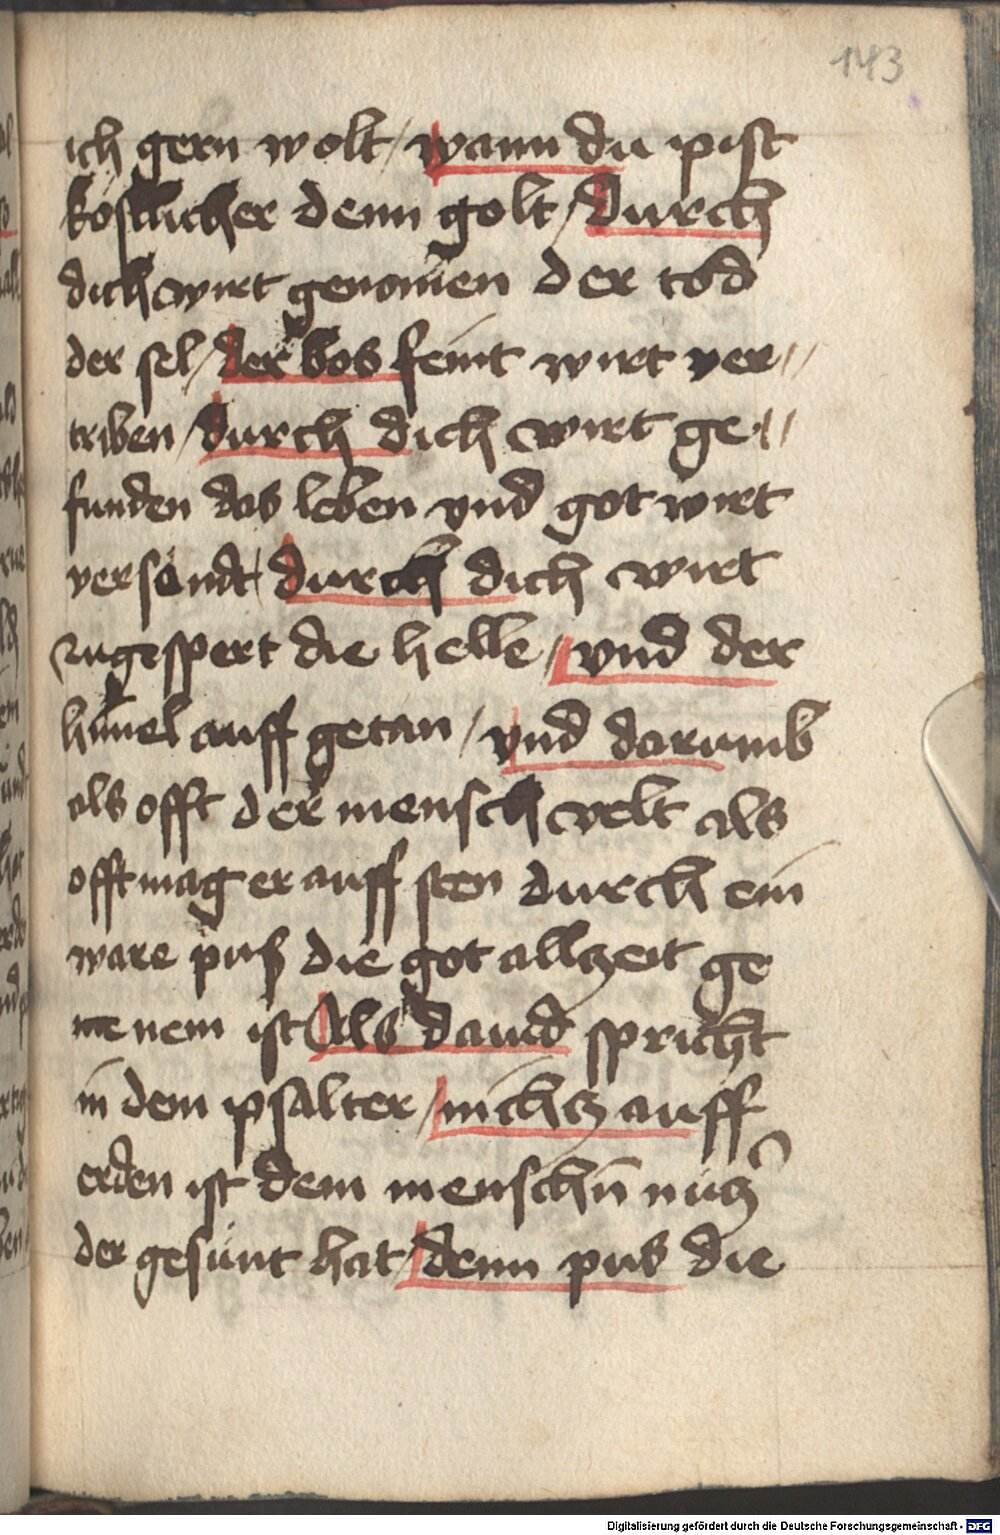 143
ich gern wolt / wann du pist
köstlicher denn golt / Durch
dich wirt genom̄en der töd
der sel / der bos feint wirt ver //
triben / durch dich wirt ge //
funden das leben vnd got wirt
versönt / durch dich wirt
zugespert die helle / vnd der
him̄el auff getan / vnd darumb
als offt der mensch velt als
offt mag er auff sten durch ein
ware puß die got allzeit ge
nem ist Als dauid spricht
in dem psalter / nichcz auff
erden ist dem menschn̄ nücz
der gesünt hat / denn pus die
Digitalisierung gefördert durch die Deutsche Forschungsgemeinschaft - DFG